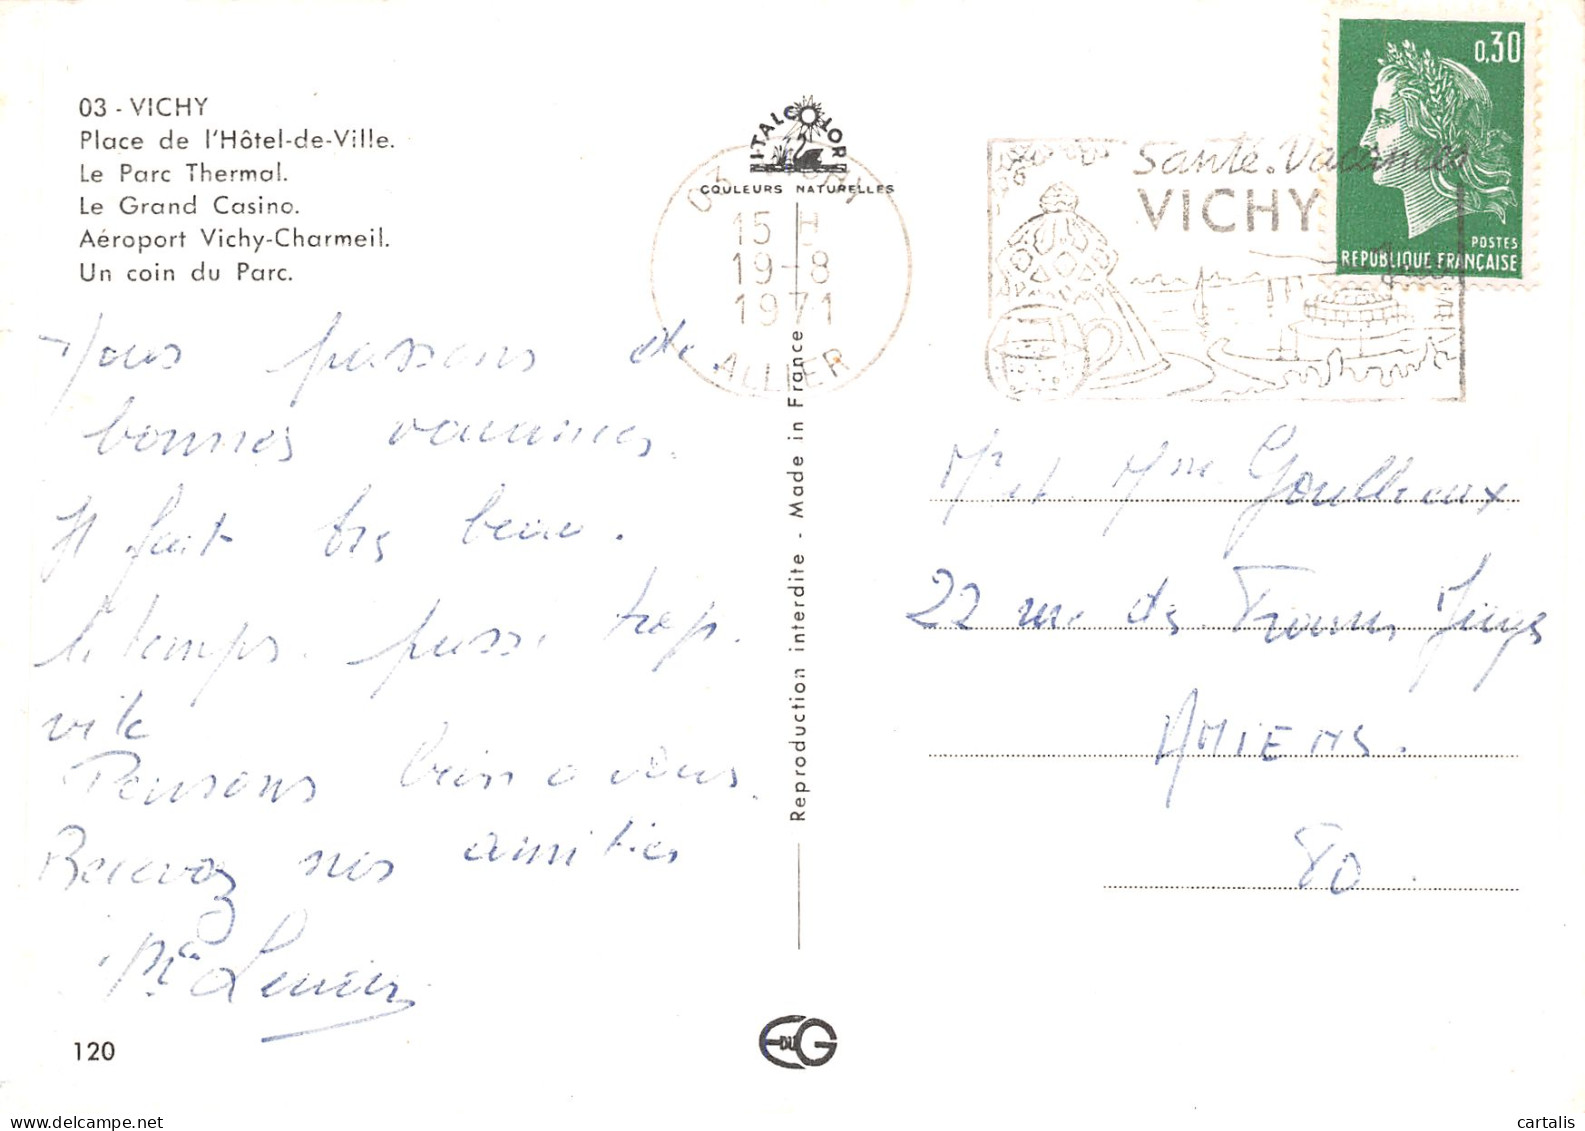 03 - VICHY
Place de l'Hôtel-de-Ville.
Le Parc Thermal.
Le Grand Casino.
Aéroport Vichy-Charmeil.
Un coin du Parc.
Nous passons de
bonnes vacances.
Il fait très beau.
le temps passe trop
vite
Pensons bien a vous.
Recevez nos amitiés
120
ITALCOLOR
COULEURS NATURELLES
VICHY
15 H
19-8
1971
ALLIER
Reproduction interdite - Made in France
E DU G
Santé. Vacances
VICHY
0,30
POSTES
REPUBLIQUE FRANÇAISE
Mr et Mme
22 rue des
AMIENS.
80.
cartalis